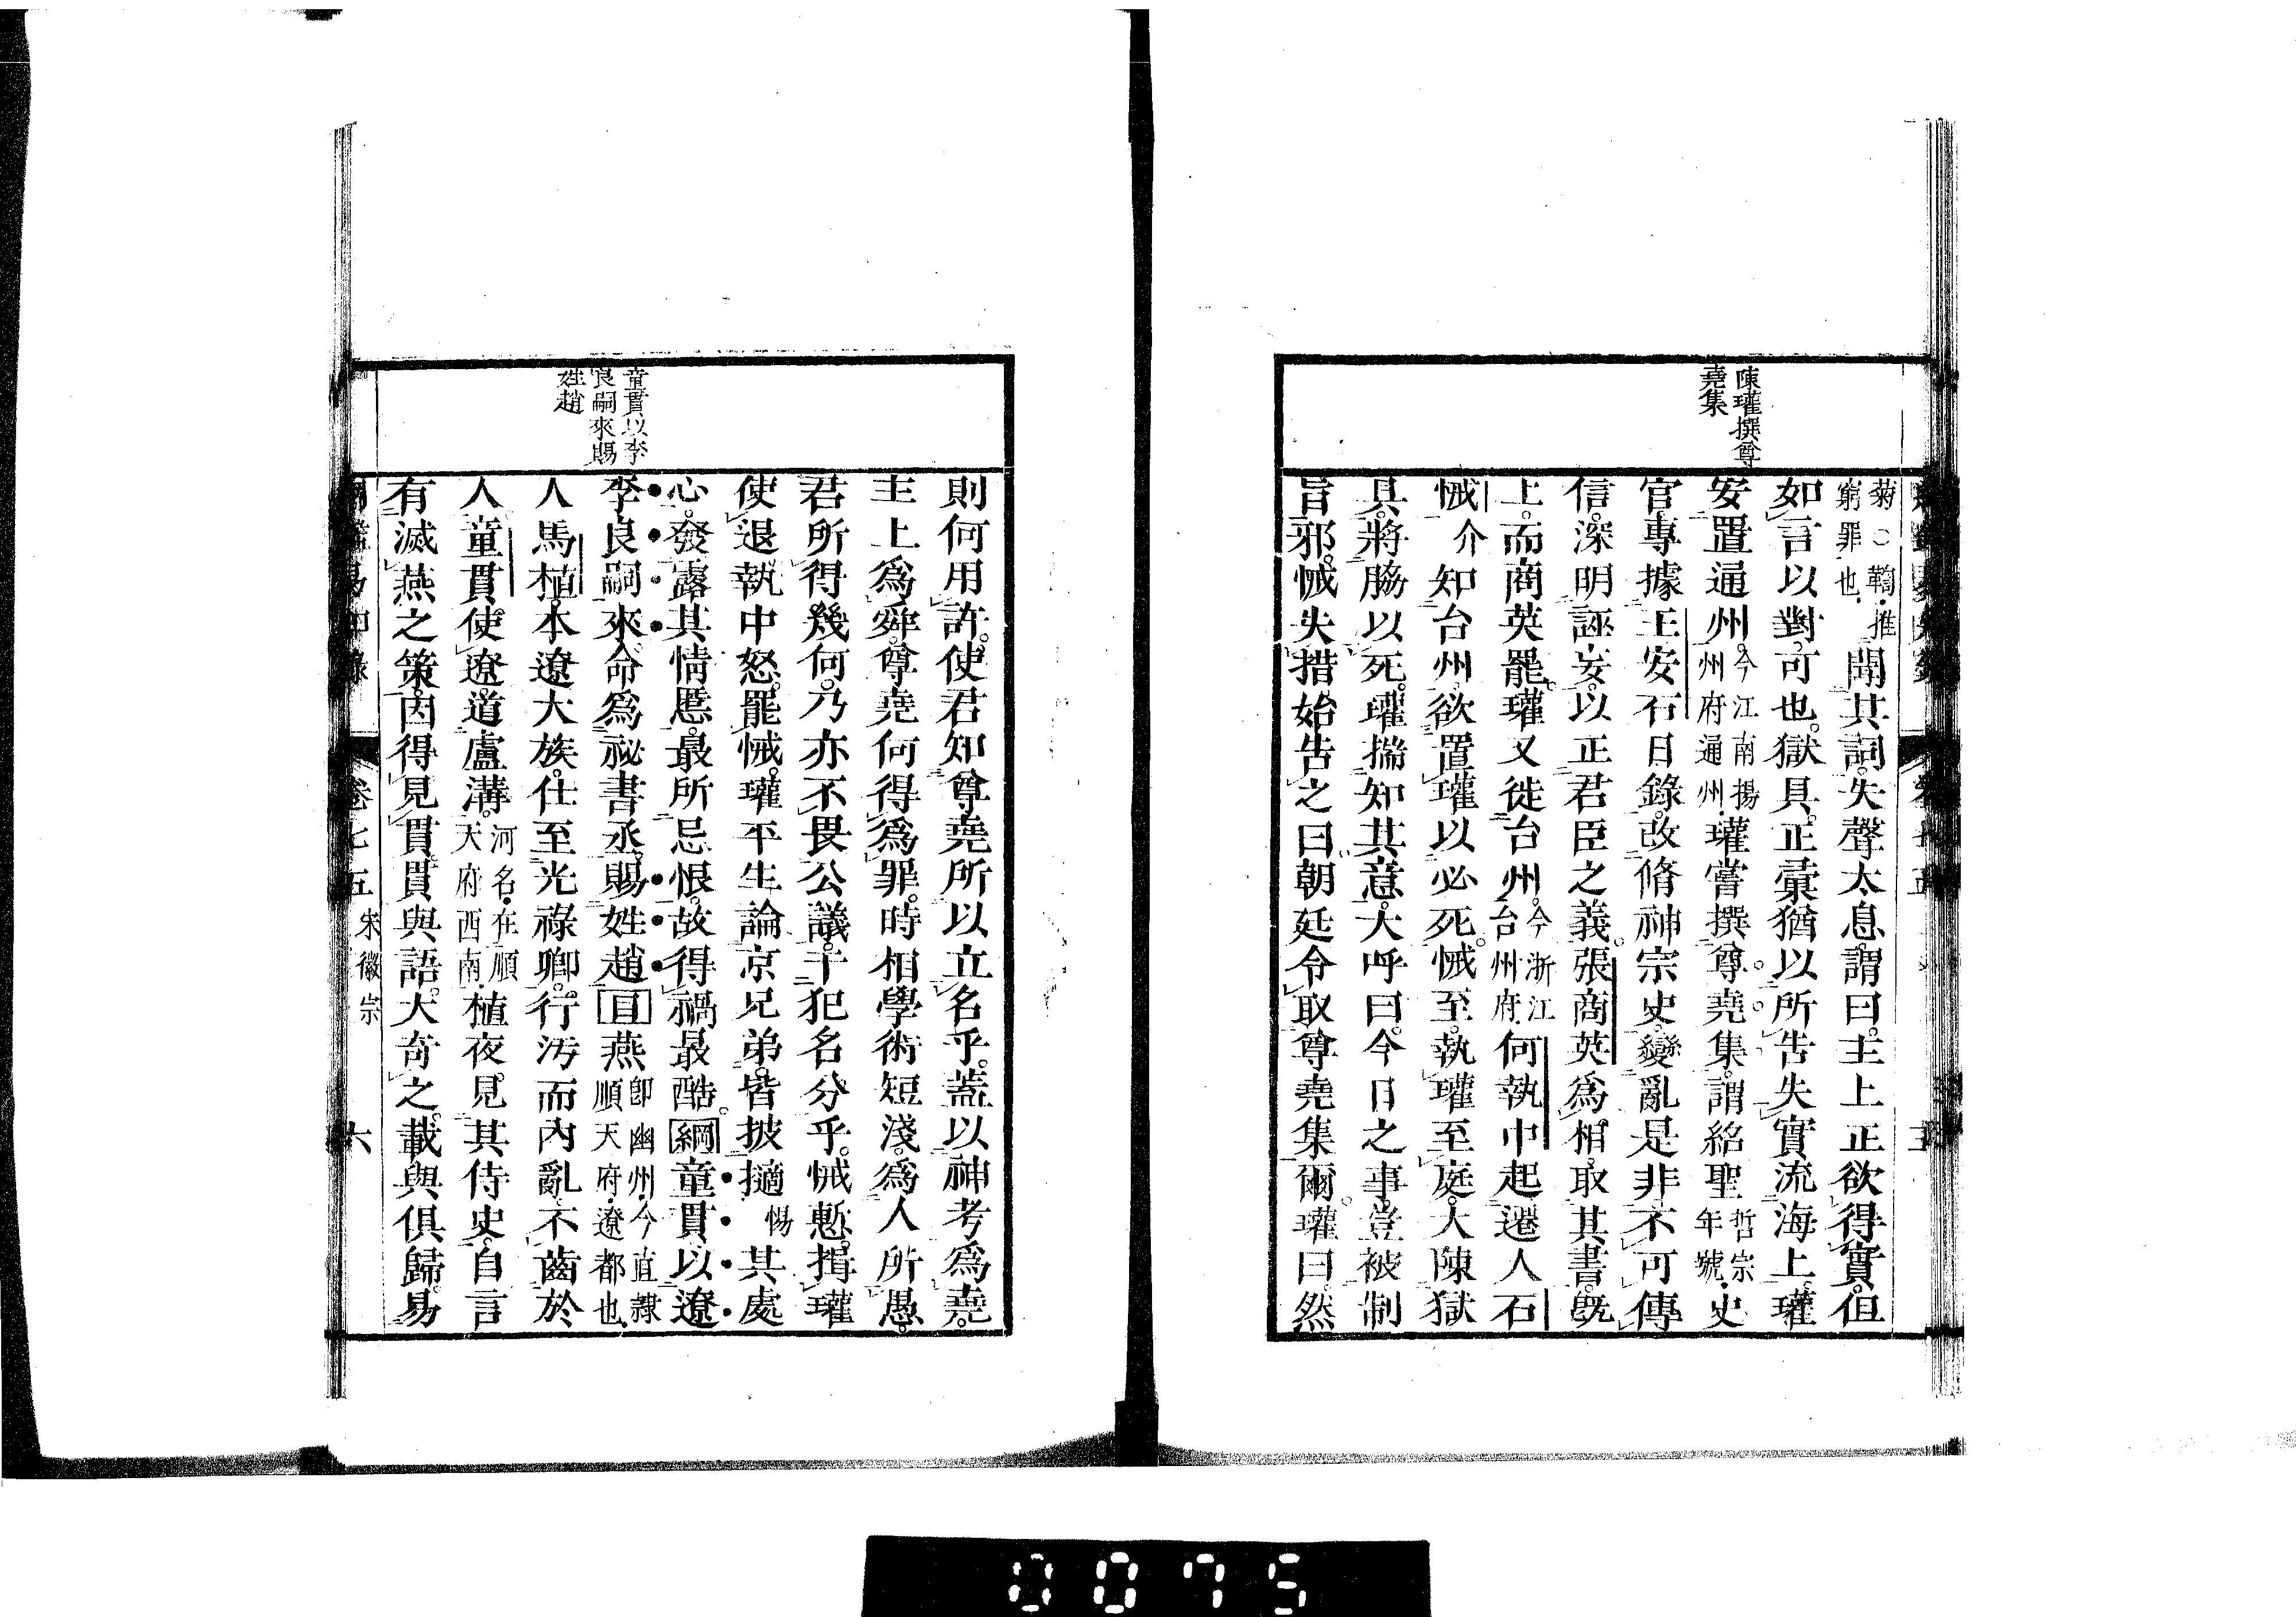 陳瓘撰尊
堯集
菊〇鞫推
窮罪也
聞其詞失聲太息謂曰主上正欲得實但
如言以對可也獄具正彙猶以所告失實流海上瓘
安置通州今江南揚州府通州瓘嘗撰尊堯集謂紹聖哲宗年號史
官專據王安石日錄改脩神宗史變亂是非不可傳
信深明誣妄以正君臣之義張商英爲相取其書旣
上而商英罷瓘又徙台州今浙江台州府何執中起遷人石
悈介知台州欲置瓘以必死悈至執瓘至庭大陳獄
具將脇以死瓘揣知其意大呼曰今日之事豈被制
旨邪悈失措始告之曰朝廷令取尊堯集爾瓘曰然
童貫以李
良嗣來賜
姓趙
則何用許使君知尊堯所以立名乎蓋以神考爲堯
主上爲舜尊堯何得爲罪時相學術短淺爲人所愚
君所得幾何乃亦不畏公議干犯名分乎悈慙揖瓘
使退執中怒罷悈瓘平生論京兄弟皆披擿惕其處
心發露其情慝最所忌恨故得禍最酷綱童貫以遼
李良嗣來命爲祕書丞賜姓趙目燕卽幽州今直隸順天府遼都也
人馬植本遼大族仕至光祿卿行汚而內亂不齒於
人童貫使遼道盧溝河名在順天府西南植夜見其侍史自言
有滅燕之策因得見貫貫與語大奇之載與俱歸易
卷七五 宋徽宗 六
0075